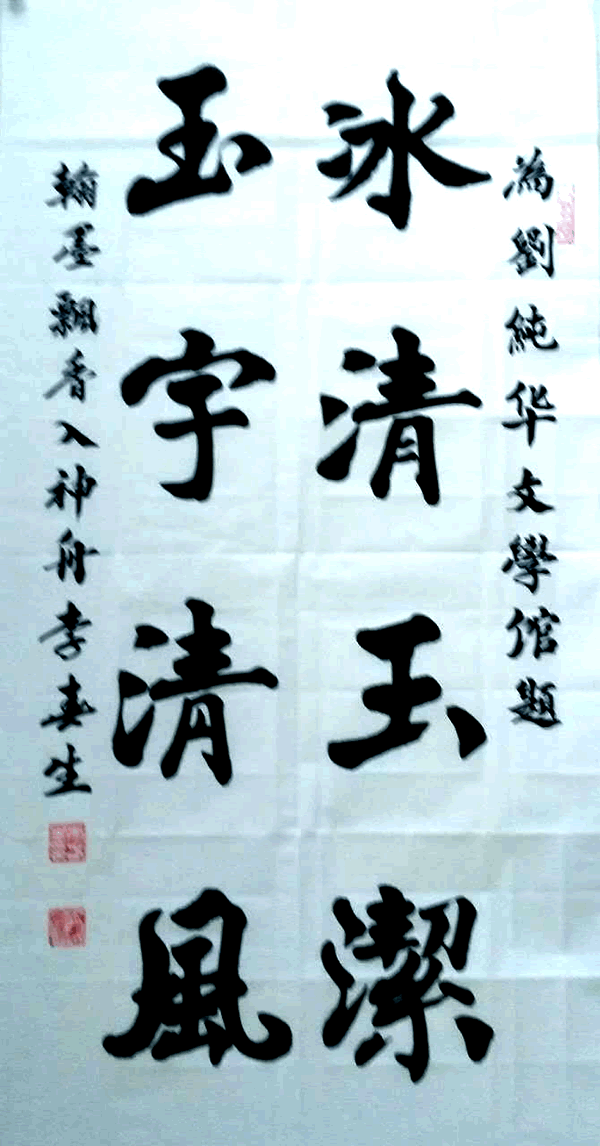 為劉純华文學倌題
冰清玉潔
玉字清風
翰墨飘香入神舟李春生